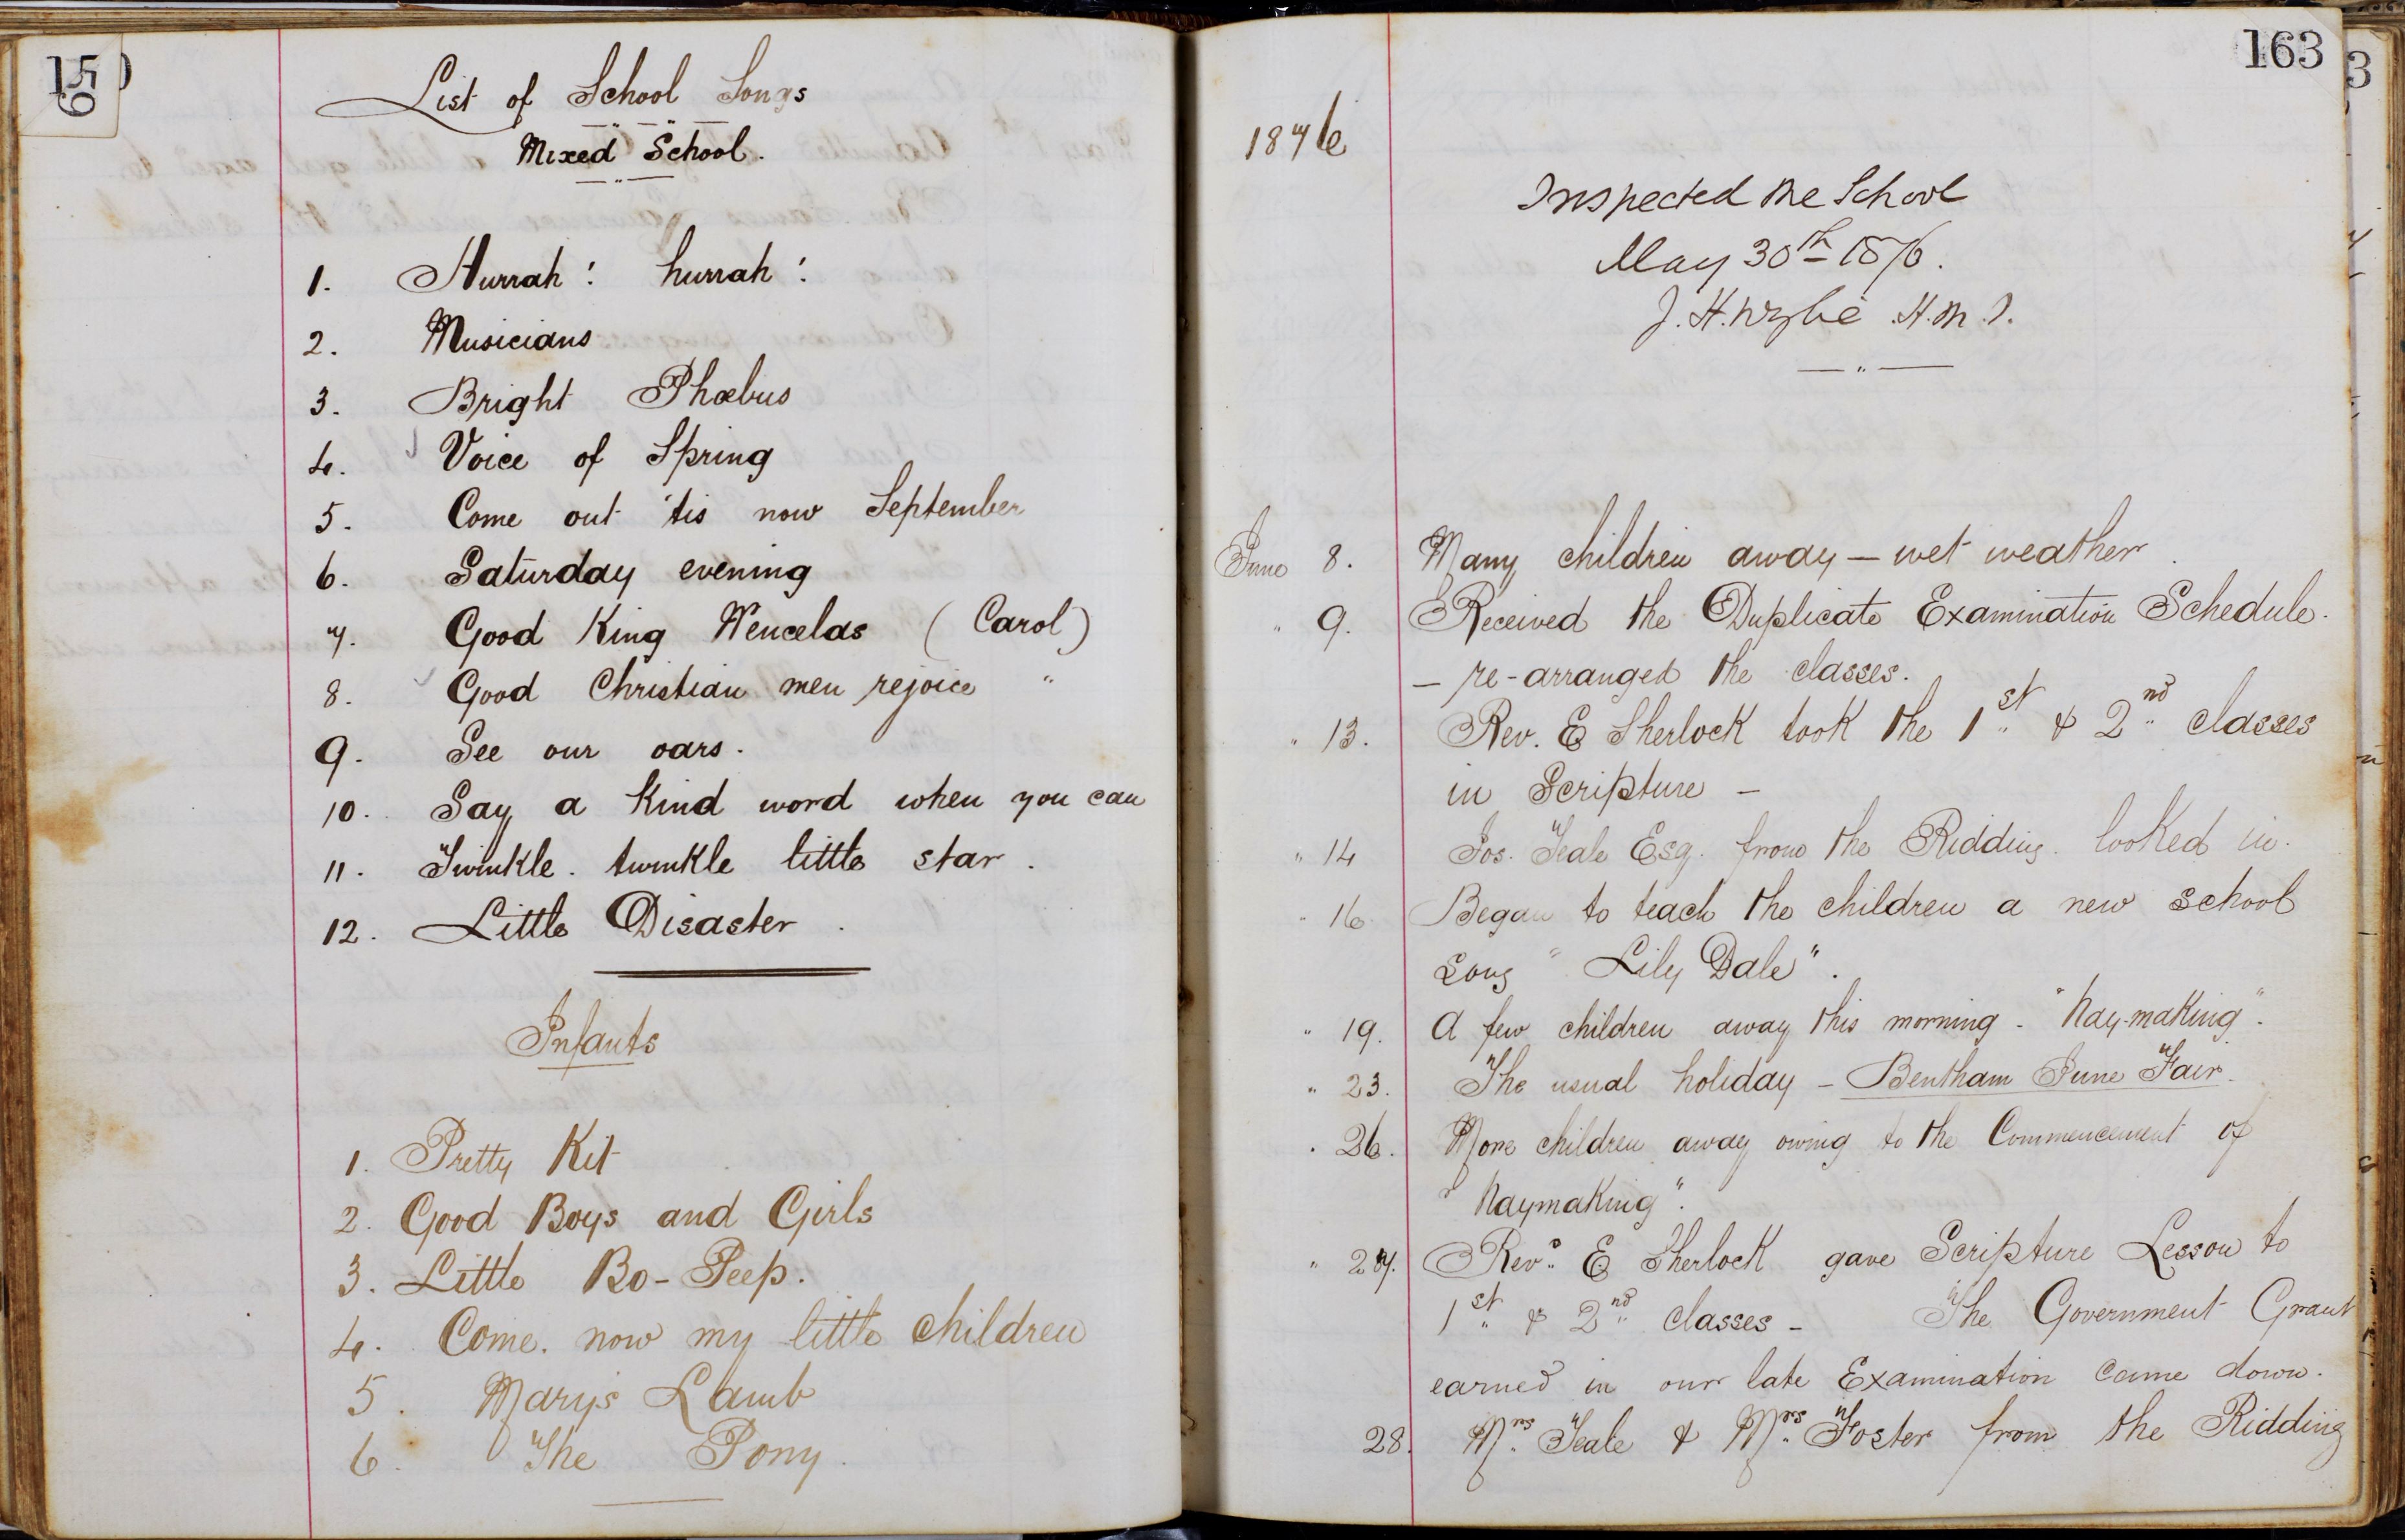 159
List of School Songs
Mixed School.
1. Hurrah! hurrah!
2. Musicians
3. Bright Phœbus
4. Voice of Spring
5. Come out 'tis now September
6. Saturday evening
7. Good King Wencelas (Carol)
8. Good Christian men rejoice "
9. See our oars.
10. Say a kind word when you can
11. Twinkle. twinkle little star.
12. Little Disaster.
Infants
1. Pretty Kit
2. Good Boys and Girls
3. Little Bo-Peep.
4. Come. now my little children
5. Mary's Lamb
6. The Pony.
163
1876
Inspected the School
May 30th 1876.
J. H. Wylie H.M.I.
June 8. Many children away — wet weather.
" 9. Received the Duplicate Examination Schedule.
— re-arranged the classes.
" 13. Rev. E Sherlock took the 1st & 2nd classes
in Scripture —
" 14 Jos. Teale Esq. from the Ridding. looked in.
" 16 Began to teach the children a new school
song "Lily Dale".
" 19. A few children away this morning - "hay-making".
" 23. The usual holiday — Bentham June Fair.
" 26. More children away owing to the Commencement of
"haymaking".
" 27. Revd. E Sherlock gave Scripture Lesson to
1st & 2nd classes — The Government Grant
earned in our late Examination came down.
28. Mrs. Teale & Mrs. Foster from the Ridding